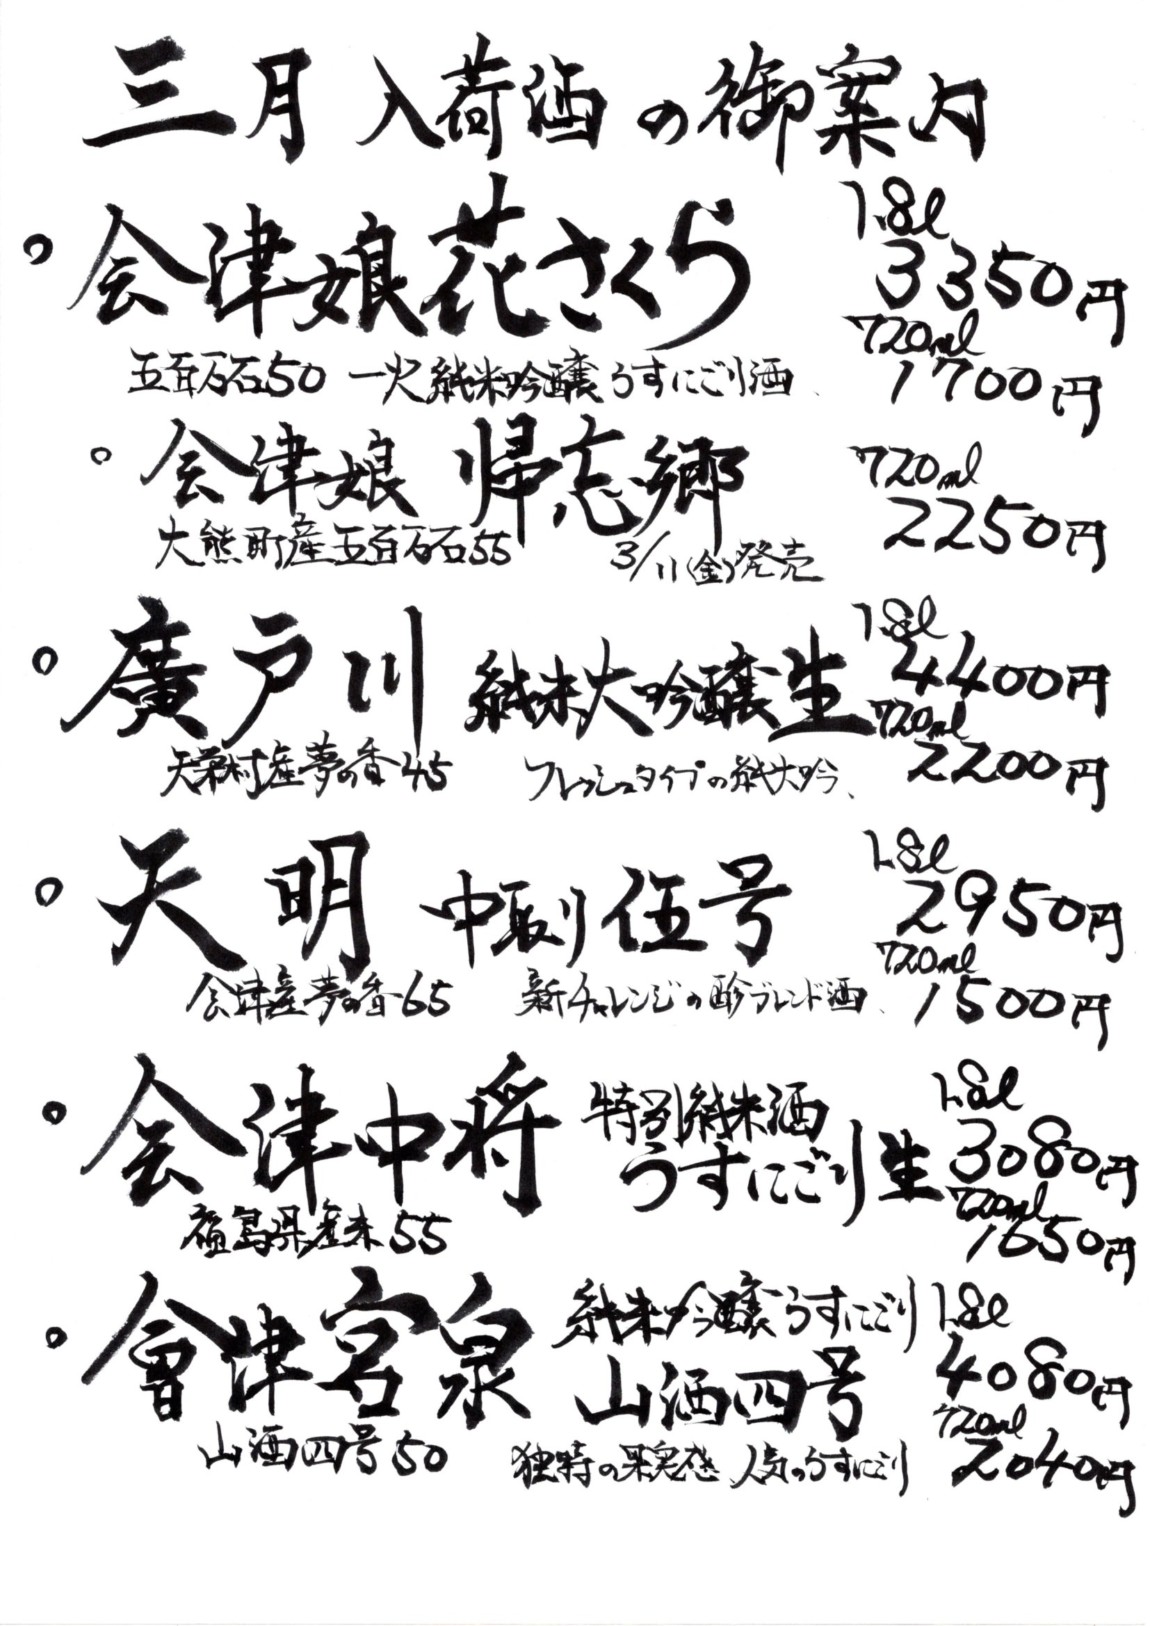 三月 入荷酒の御案内
。会津娘花さくら 1.8l 3350円
五百万石50 一火純米吟醸うすにごり酒、 720ml 1700円
。会津娘 帰忘郷 720ml 2250円
大熊町産五百万石55 3/11(金)発売
。廣戸川 純米大吟醸生 1.8l 4400円
天栄村産夢の香45 フレッシュタイプの純大吟、 720ml 2200円
。天明 中取り伍号 1.8l 2950円
会津産夢の香65 新チャレンジの酛ブレンド酒、 720ml 1500円
。会津中将 特別純米酒 うすにごり生 1.8l 3080円
福島県産米55 720ml 1650円
。會津宮泉 純米吟醸うすにごり 山酒四号 1.8l 4080円
山酒四号50 独特の果実感 人気のうすにごり 720ml 2040円